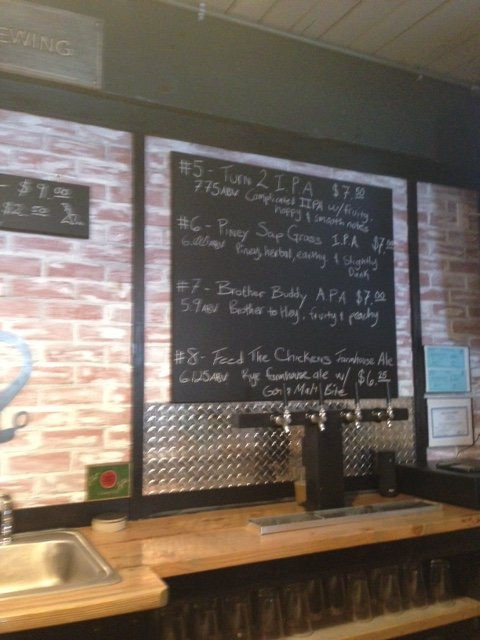 EWING
- $9.00
$12.00
#5 - Turn 2 I.P.A $7.00
7.75ABV Complicated IIPA w/ fruity,
hoppy & smooth notes
#6 - Piney Sap Grass I.P.A $7.00
Piney, herbal, earthy, & Slightly
Dank
#7 - Brother Buddy A.P.A $7.00
5.9ABV Brother to Hey, fruity & peachy
#8 - Feed The Chickens Farmhouse Ale
6.125ABV Rye farmhouse ale w/ $6.25
Malt Bite